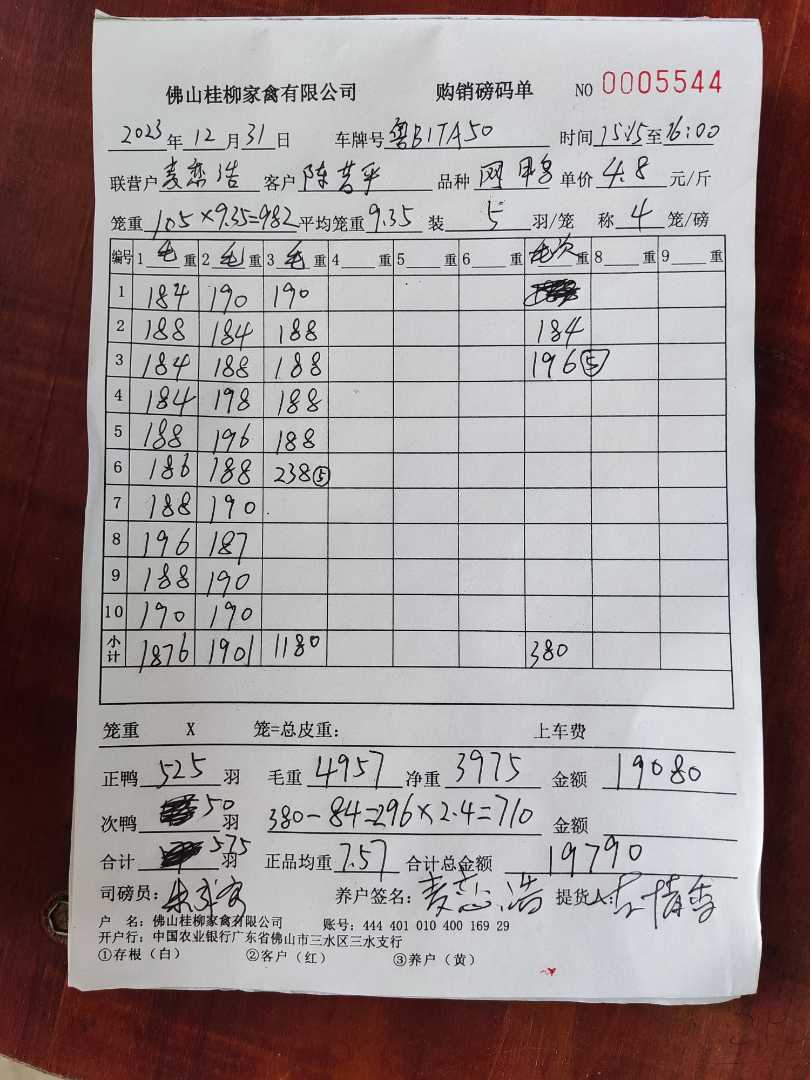 佛山桂柳家禽有限公司 购销磅码单 NO 0005544
2023年12月31日 车牌号 粤B1TA50 时间 15:15至16:00
联营户 麦恋浩 客户 陈 平 品种 网 单价 4.8 元/斤
笼重 105×9.35=982 平均笼重 9.35 装 5 羽/笼 称 4 笼/磅
编号 1 毛 重 2 毛 重 3 毛 重 4 重 5 重 6 重 毛次 重 8 重 9 重
1 184 190 190
2 188 184 188 184
3 184 188 188 196⑤
4 184 198 188
5 188 196 188
6 186 188 238⑤
7 188 190
8 196 187
9 188 190
10 190 190
小计 1876 1901 1180 380
笼重 X 笼=总皮重: 上车费
正鸭 525 羽 毛重 4957 净重 3975 金额 19080
次鸭 50 羽 380-84=296×2.4=710 金额
合计 575 羽 正品均重 7.57 合计总金额 19790
司磅员: 朱 养户签名: 麦恋浩 提货人:
户 名: 佛山桂柳家禽有限公司 账号: 444 401 010 400 169 29
开户行: 中国农业银行广东省佛山市三水区三水支行
①存根(白) ②客户(红) ③养户(黄)